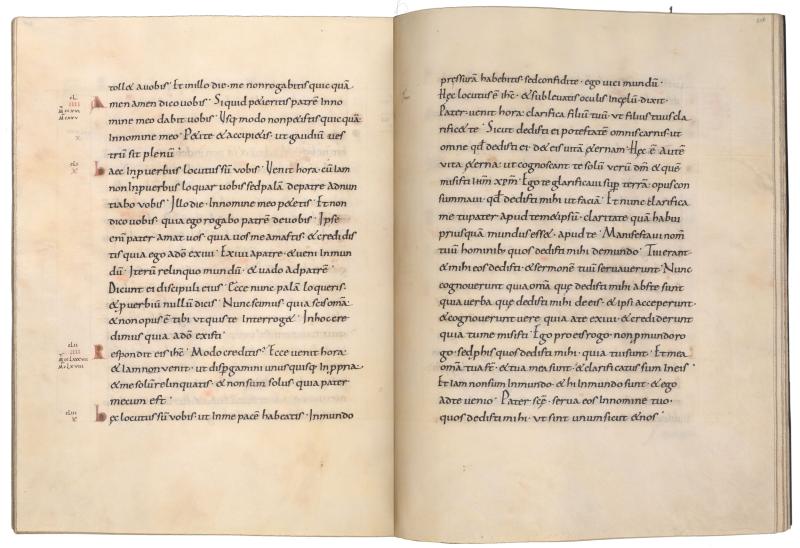 toll& auobis · Et inillo die · me nonrogabitis quicquā
Amen amen dico uobis · Siquid p&ieritis patrē Inno
mine meo dabit uobis · Usq; modo nonp&istis quicquā
Innomine meo · P&ite & accipi&is · ut gaudiū ues
trū sit plenū ·
haec Inpuerbiis locutus sū uobis · Uenit hora · cū Iam
non Inpuerbiis loquar uobis sed palā depatre Adnun
tiabo uobis · Illo die · Innomine meo p&etis · Et non
dico uobis · quia ego rogabo patrē deuobis · Ipse
enī pater amat uos · quia uos me amastis · & credidis
tis quia ego adō exiui · Exiui apatre · & ueni Inmun
dū · Iterū relinquo mundū · & uado adpatrē ·
Dicunt ei discipuli eius · Ecce nunc palā loqueris ·
& puerbiū nullū dicis · Nunc scimus · quia scis omā ·
& non opus ē tibi ut quis te Interrog& · Inhoc cre
dimus quia adō existi ·
Respondit eis ihc̄ · Modo creditis · Ecce uenit hora ·
& Iam non uenit · ut dispgamini unus quisq; Inppria ·
& me solū relinquatis · & non sum solus · quia pater
mecum est ·
hęc locutus sū uobis · ut Inme pacē habeatis · Inmundo
pressurā habebitis · sed confidite · ego uici mundū ·
Hęc locutus ē ihc̄ · & subleuatis oculis Incęlū · dixit ·
Pater · uenit hora · clarifica filiū tuū · ut filius tuus cla
rific& te · Sicut dedisti ei potestatē omnis carnis · ut
omne qđ dedisti ei · d& eis uitā &ernam · Hęc ē autē
uita &erna · ut cognoscant te solū uerū dm̄ & quē
misisti ihm̄ xpm̄ · Ego te glarificaui sup terrā · opus con
summaui · qđ dedisti mihi ut faciā · Et nunc clarifica
me tu pater · apud tem&ipsū · claritate quā habui
priusquā mundus ess& · apud te · Manifestaui nom̄
tuū hominib; quos dedisti mihi demundo · Tui erant ·
& mihi eos dedisti · & sermonē tuū seruauerunt · Nunc
cognouerunt quia omā quę dedisti mihi abs te sunt ·
quia uerba quę dedisti mihi dedi eis · & ipsi acceperunt ·
& cognouerunt uere quia ate exiui · & crediderunt
quia tu me misisti · Ego pro eis rogo · non p mundo ro
go · sed p his quos dedisti mihi · quia tui sunt · Et mea
omā tua sē · & tua mea sunt · & clarificatus sum Ineis ·
Et iam non sum Inmundo · & hi Inmundo sunt · & ego
ad te uenio · Pater scē · serua eos Innomine tuo ·
quos dedisti mihi · ut sint unum sicut & nos ·